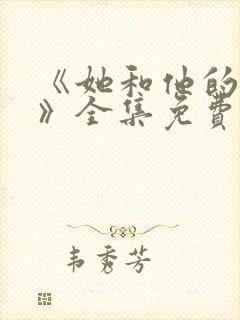 《她和他的
》全集免费
韦秀芳